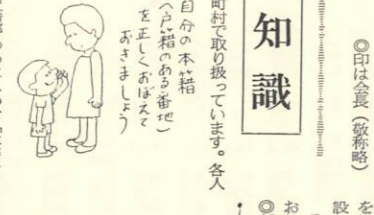 ◎印は会長（敬称略）
知識
町村で取り扱っています。各人
自分の本籍
（戸籍のある番地）
を正しくおぼえて
おきましょう
を
設
お
◎